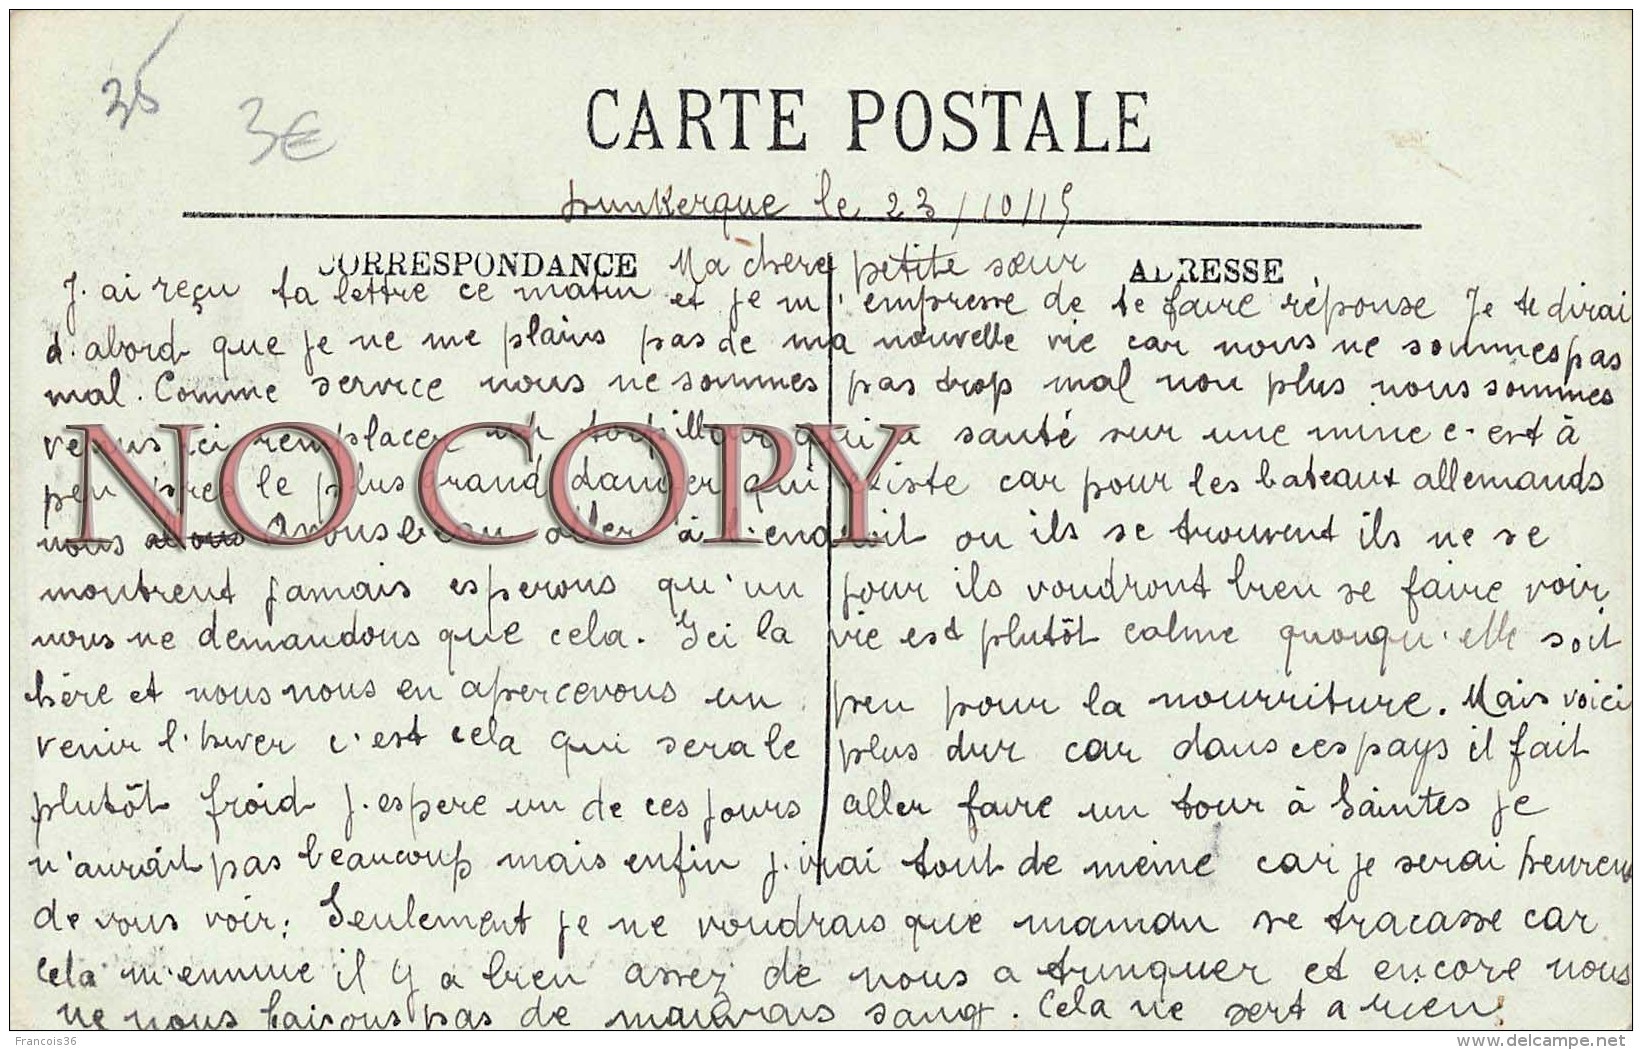 35
3€
CARTE POSTALE
Dunkerque le 23/10/15
CORRESPONDANCE Ma chere petite sœur ADRESSE
J'ai reçu ta lettre ce matin et je m'empresse de te faire réponse Je te dirai
d'abord que je ne me plains pas de ma nouvelle vie car nous ne sommes pas
mal. Comme service nous ne sommes pas trop mal non plus nous sommes
venus ici remplacer un torpilleur qui a santé sur une mine c'est à
peu pres le plus grand danger qui existe car pour les bateaux allemands
nous avons avons beau aller à l'endroit ou ils se trouvent ils ne se
montrent jamais esperons qu'un jour ils voudront bien se faire voir
nous ne demandons que cela. Ici la vie est plutôt calme quoiqu'elle soit
chère et nous nous en apercevons un peu pour la nourriture. Mais voici
venir l'hiver c'est cela qui sera le plus dur car dans ces pays il fait
plutôt froid j'espere un de ces jours aller faire un tour à Saintes je
n'aurait pas beaucoup mais enfin j'irai tout de meme car je serai heureux
de vous voir; Seulement je ne voudrais que maman se tracasse car
cela m'ennuie il y a bien assez de nous a trinquer et encore nous
ne nous faisons pas de mauvais sang. Cela ne sert a rien.
NO COPY
Francois36
www.delcampe.net